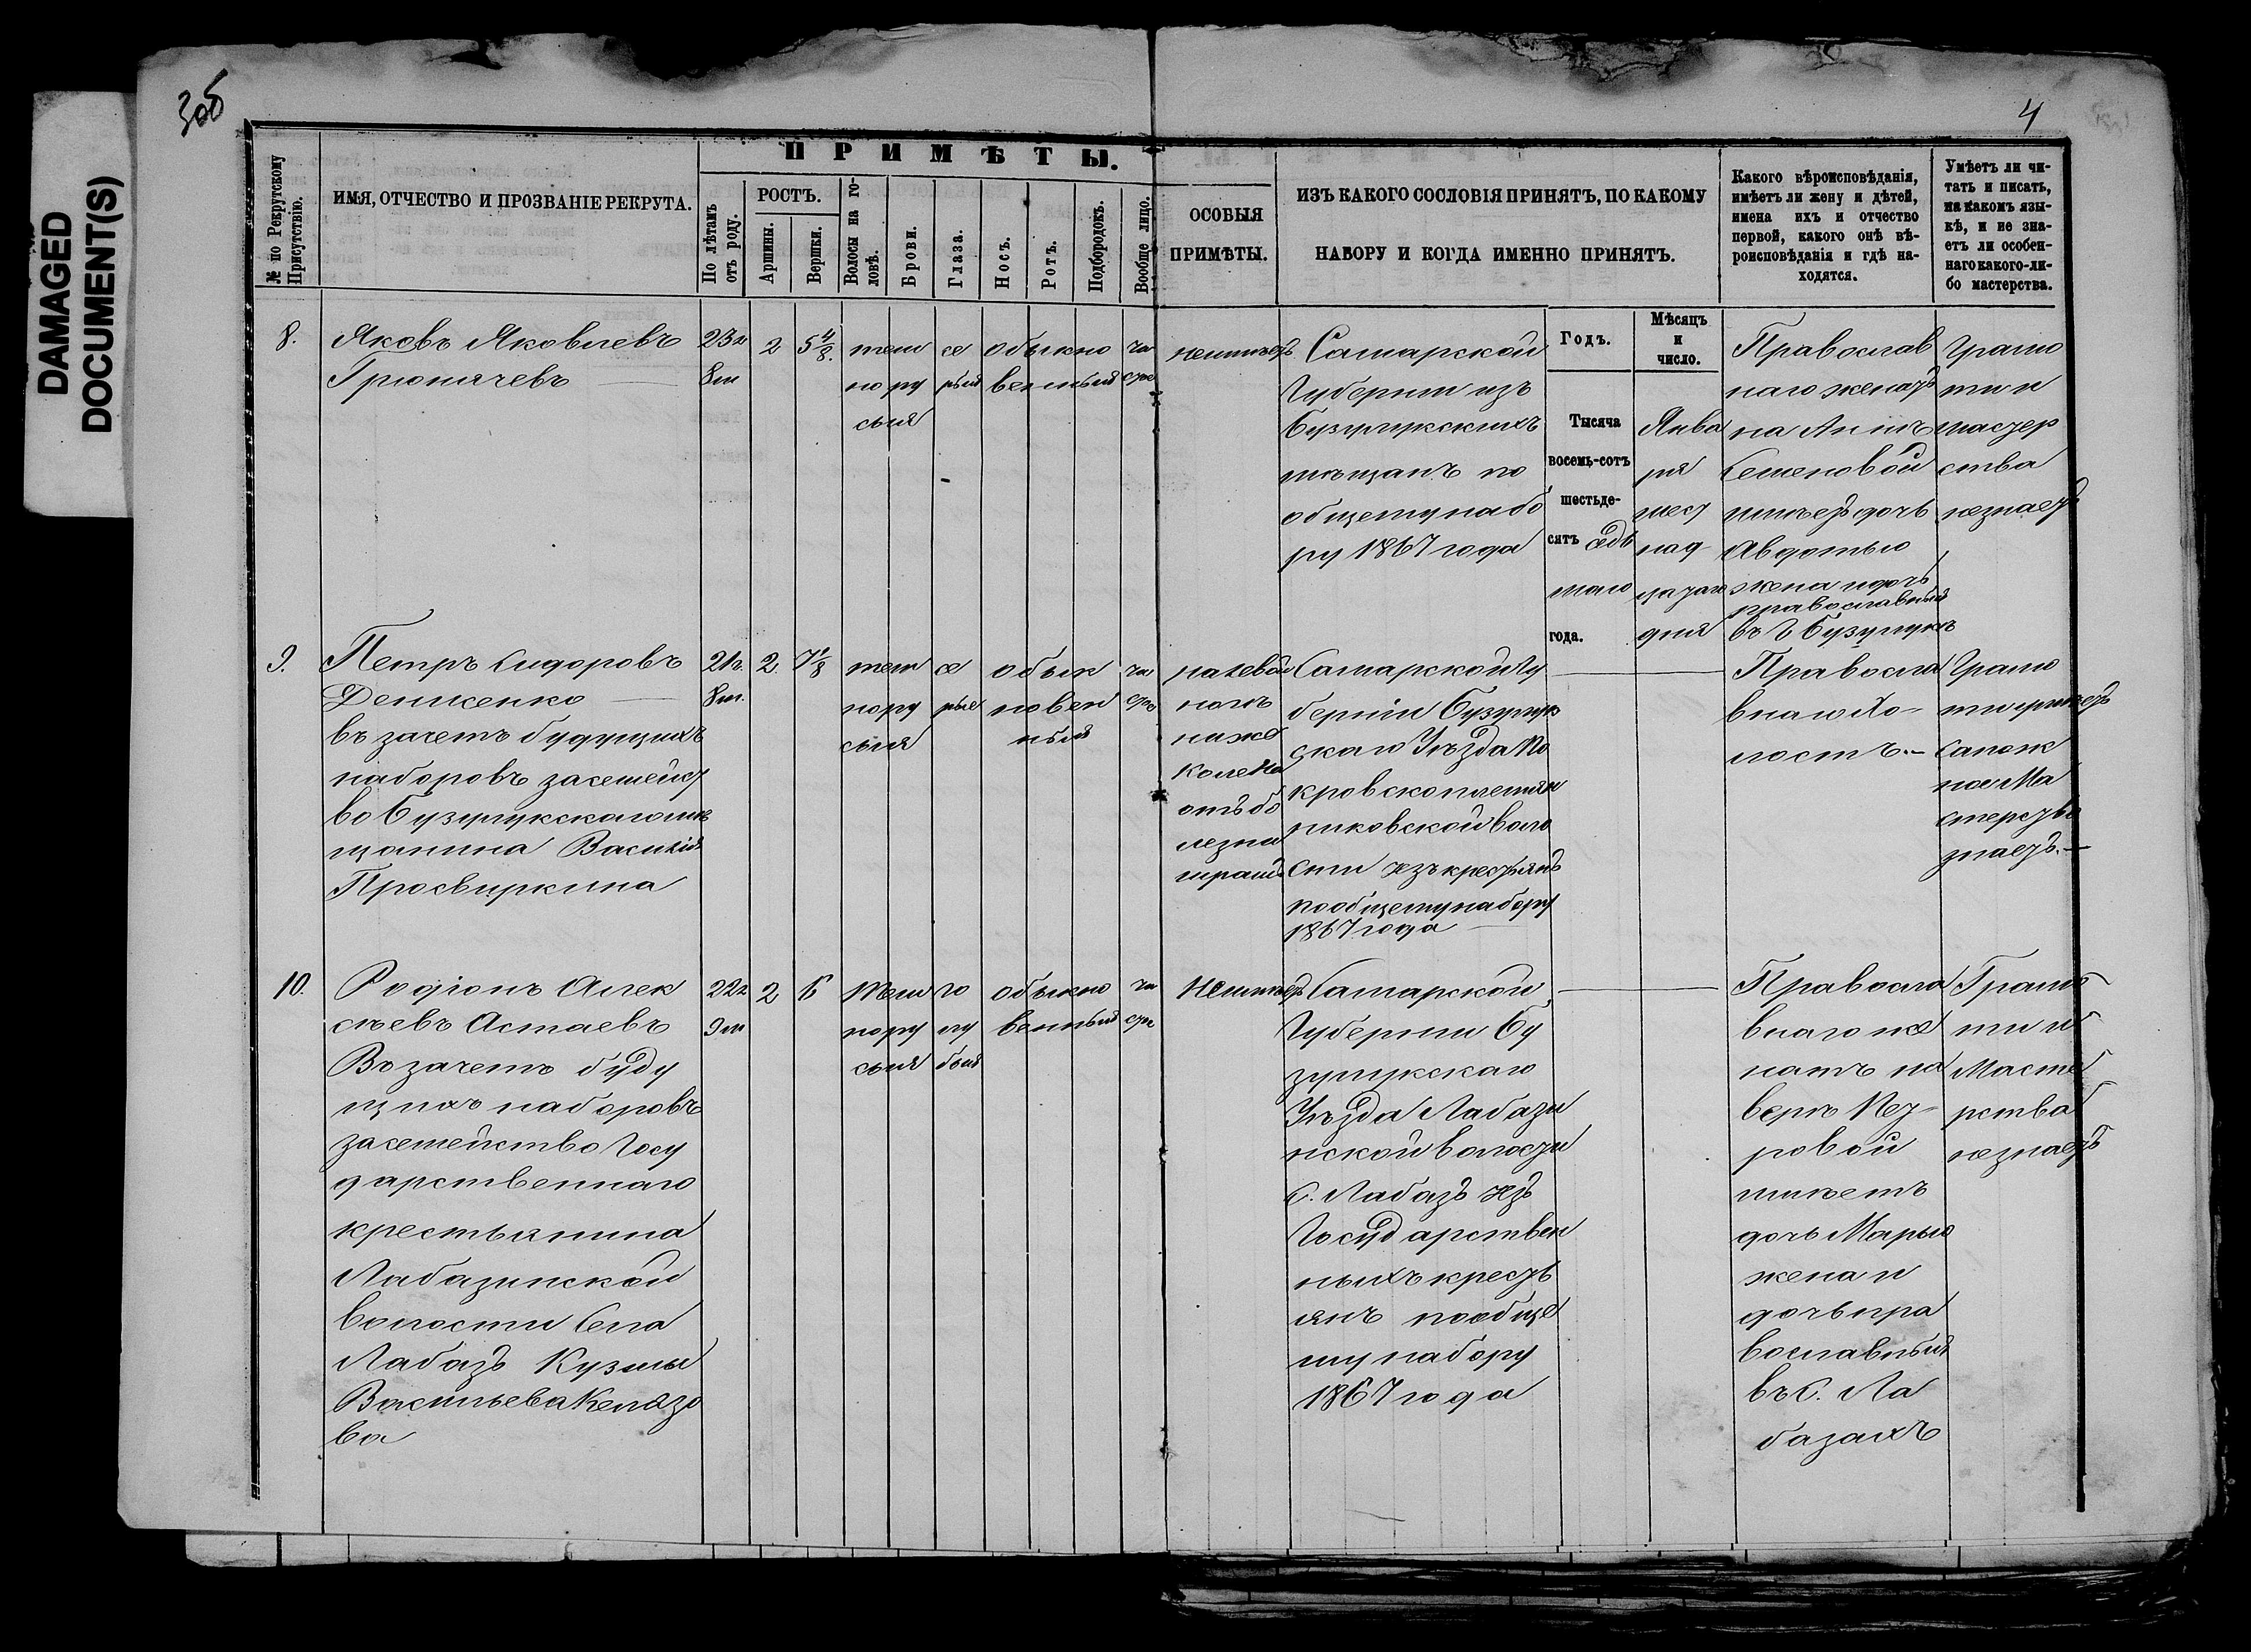 DAMAGED
DOCUMENT(S)
3об
4
№ по Рекрутскому
Присутствію.
ИМЯ, ОТЧЕСТВО И ПРОЗВАНІЕ РЕКРУТА.
ПРИМѢТЫ.
По лѣтамъ
отъ роду.
РОСТЪ.
Аршины.
Вершки.
Волосы на го-
ловѣ.
Брови.
Глаза.
Носъ.
Ротъ.
Подбородокъ.
Вообще лицо.
ОСОБЫЯ
ПРИМѢТЫ.
ИЗЪ КАКОГО СОСЛОВІЯ ПРИНЯТЪ, ПО КАКОМУ
НАБОРУ И КОГДА ИМЕННО ПРИНЯТЪ.
Какого вѣроисповѣданія,
имѣетъ ли жену и дѣтей,
имена ихъ и отчество
первой, какого онѣ вѣ-
роисповѣданія и гдѣ на-
ходятся.
Умѣетъ ли чи-
тать и писать,
на какомъ язы-
кѣ, и не зна-
етъ ли особен-
наго какого-ли-
бо мастерства.
8.
Яковъ Яковлевъ
23 г
8 м
2
5 4/8.
тем
нору
сыя
се
рыя
обыкно
венный
чи
стое
неимѣетъ
Самарской
Губерніи изъ
Бузулукскихъ
мѣщанъ по
общему набо
ру 1867 года
Годъ.
Тысяча
восемь-сотъ
шестьде-
сятъ седь
маго
года.
Мѣсяцъ
и
число.
Янва
ря
шест
над
цатаго
дня
Православ
наго женатъ
на Аннѣ
Семеновой
имѣетъ дочь
Авдотью
жена и дочь
православныя
въ г Бузулукѣ
Грамо
ти и
мастер
ства
незнаетъ
9.
Петръ Сидоровъ
Денисенко
въ зачетъ будущихъ
наборовъ за семейст
во Бузулукскаго мѣ
щанина Василія
Просвиркина
21 г.
8 м.
2.
7 1/8
тем
нору
сыя
се
рые
обык
новен
ный
чи
стое
на левой
ноге
ниже
колена
отъ бо
лезни
шрамъ
Самарской Гу
берніи Бузулук
скаго Уѣзда По
кровскоплемян
никовской воло
сти изъ крестьянъ
по общему набору
1867 года
Правосла
внаго Хо-
лостъ.-
Грамо
ти умѣетъ
Сапож
ное Ма
стерство
знаетъ.-
10.
Родіонъ Алек
сѣевъ Астаевъ
Въ зачетъ буду
щихъ наборовъ
за семейство Госу
дарственнаго
крестьянина
Лабазинской
волости Села
Лабазъ Кузмы
22 г
9 м
2
6
тем
нору
сыя
го
лу
быя
обыкно
венный
чи
стое
Неимѣетъ
Самарской
Губерніи Бу
зулукскаго
Уѣзда Лабази
нской волости
С. Лабазъ изъ
Государствен
ныхъ кресть
янъ по обще
му набору
1867 года
Правосла
внаго же
натъ на
Верѣ Пет-
ровой
имѣетъ
дочь Марью
жена и
дочь пра
вославныя
въ С. Ла
базахъ
Грамо
ти и
Масте
рства
незнаетъ